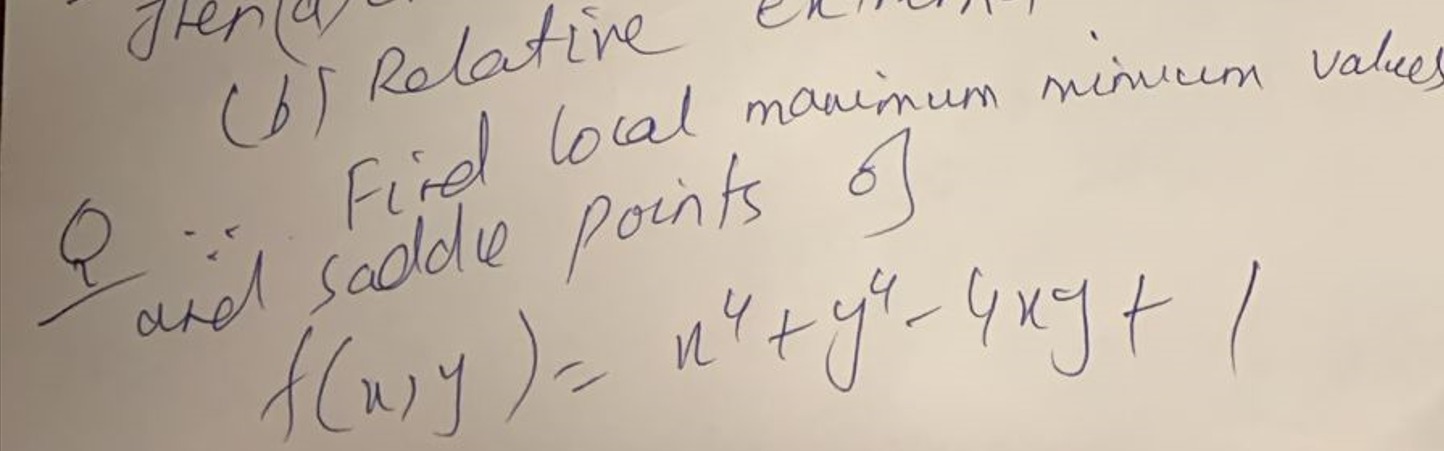 (b) Relative
Find local maximum minimum values
Q :- and saddle points of
f(x,y) = x⁴ + y⁴ - 4xy + 1